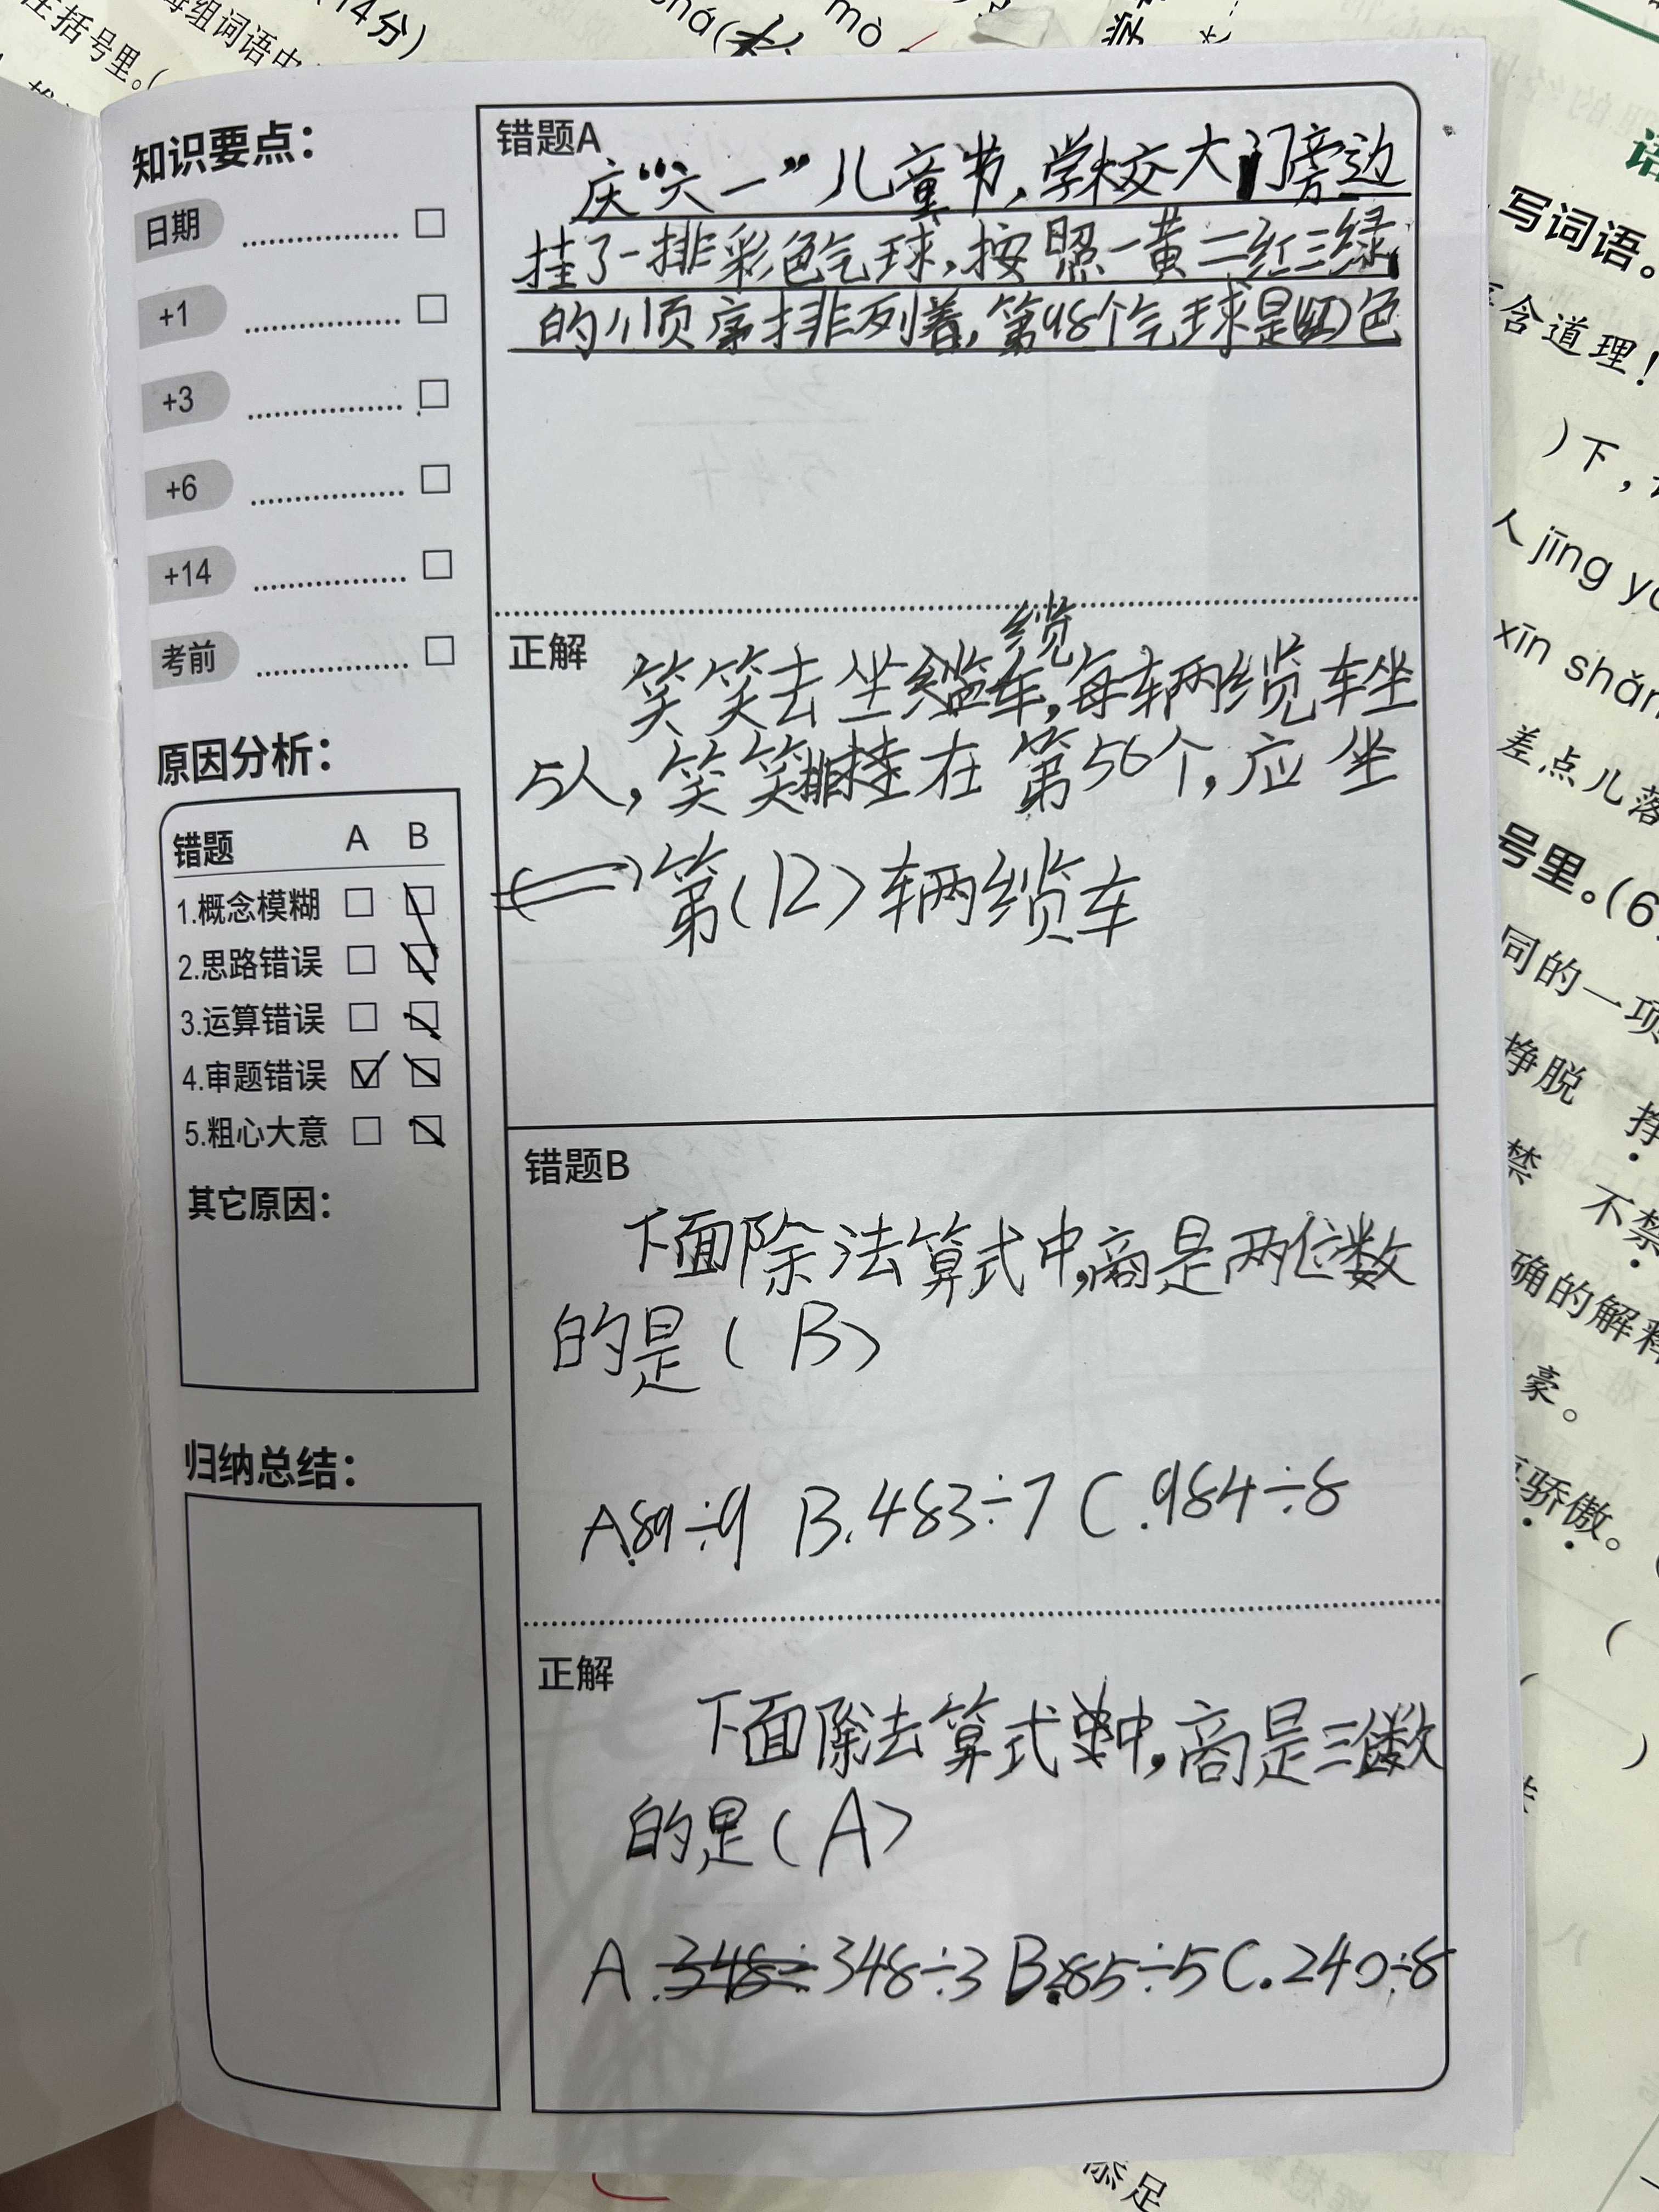 14分)
在括号里。(
每组词语中
mò
知识要点：
日期
+1
+3
+6
+14
考前
原因分析：
错题 A B
1.概念模糊
2.思路错误
3.运算错误
4.审题错误
5.粗心大意
其它原因：
归纳总结：
错题A
庆“六一”儿童节,学校大门旁边
挂了一排彩色气球,按照一黄二红三绿
的顺序排列着,第48个气球是(红)色
正解
缆
笑笑去坐车,每车两缆车坐
5人,笑笑排在第56个,应坐
第(12)辆缆车
错题B
下面除法算式中,商是两位数
的是(B)
A.89÷9 B.483÷7 C.984÷8
正解
下面除法算式中,商是三位数
的是(A)
A.348÷3 B.85÷5 C.240÷8
语
写词语。
含道理！
)下，
人jīng
xīn shǎn
差点儿落
号里。(6
同的一项
挣脱 挣
禁 不禁
确的解释
豪。
骄傲。
(
)
添足